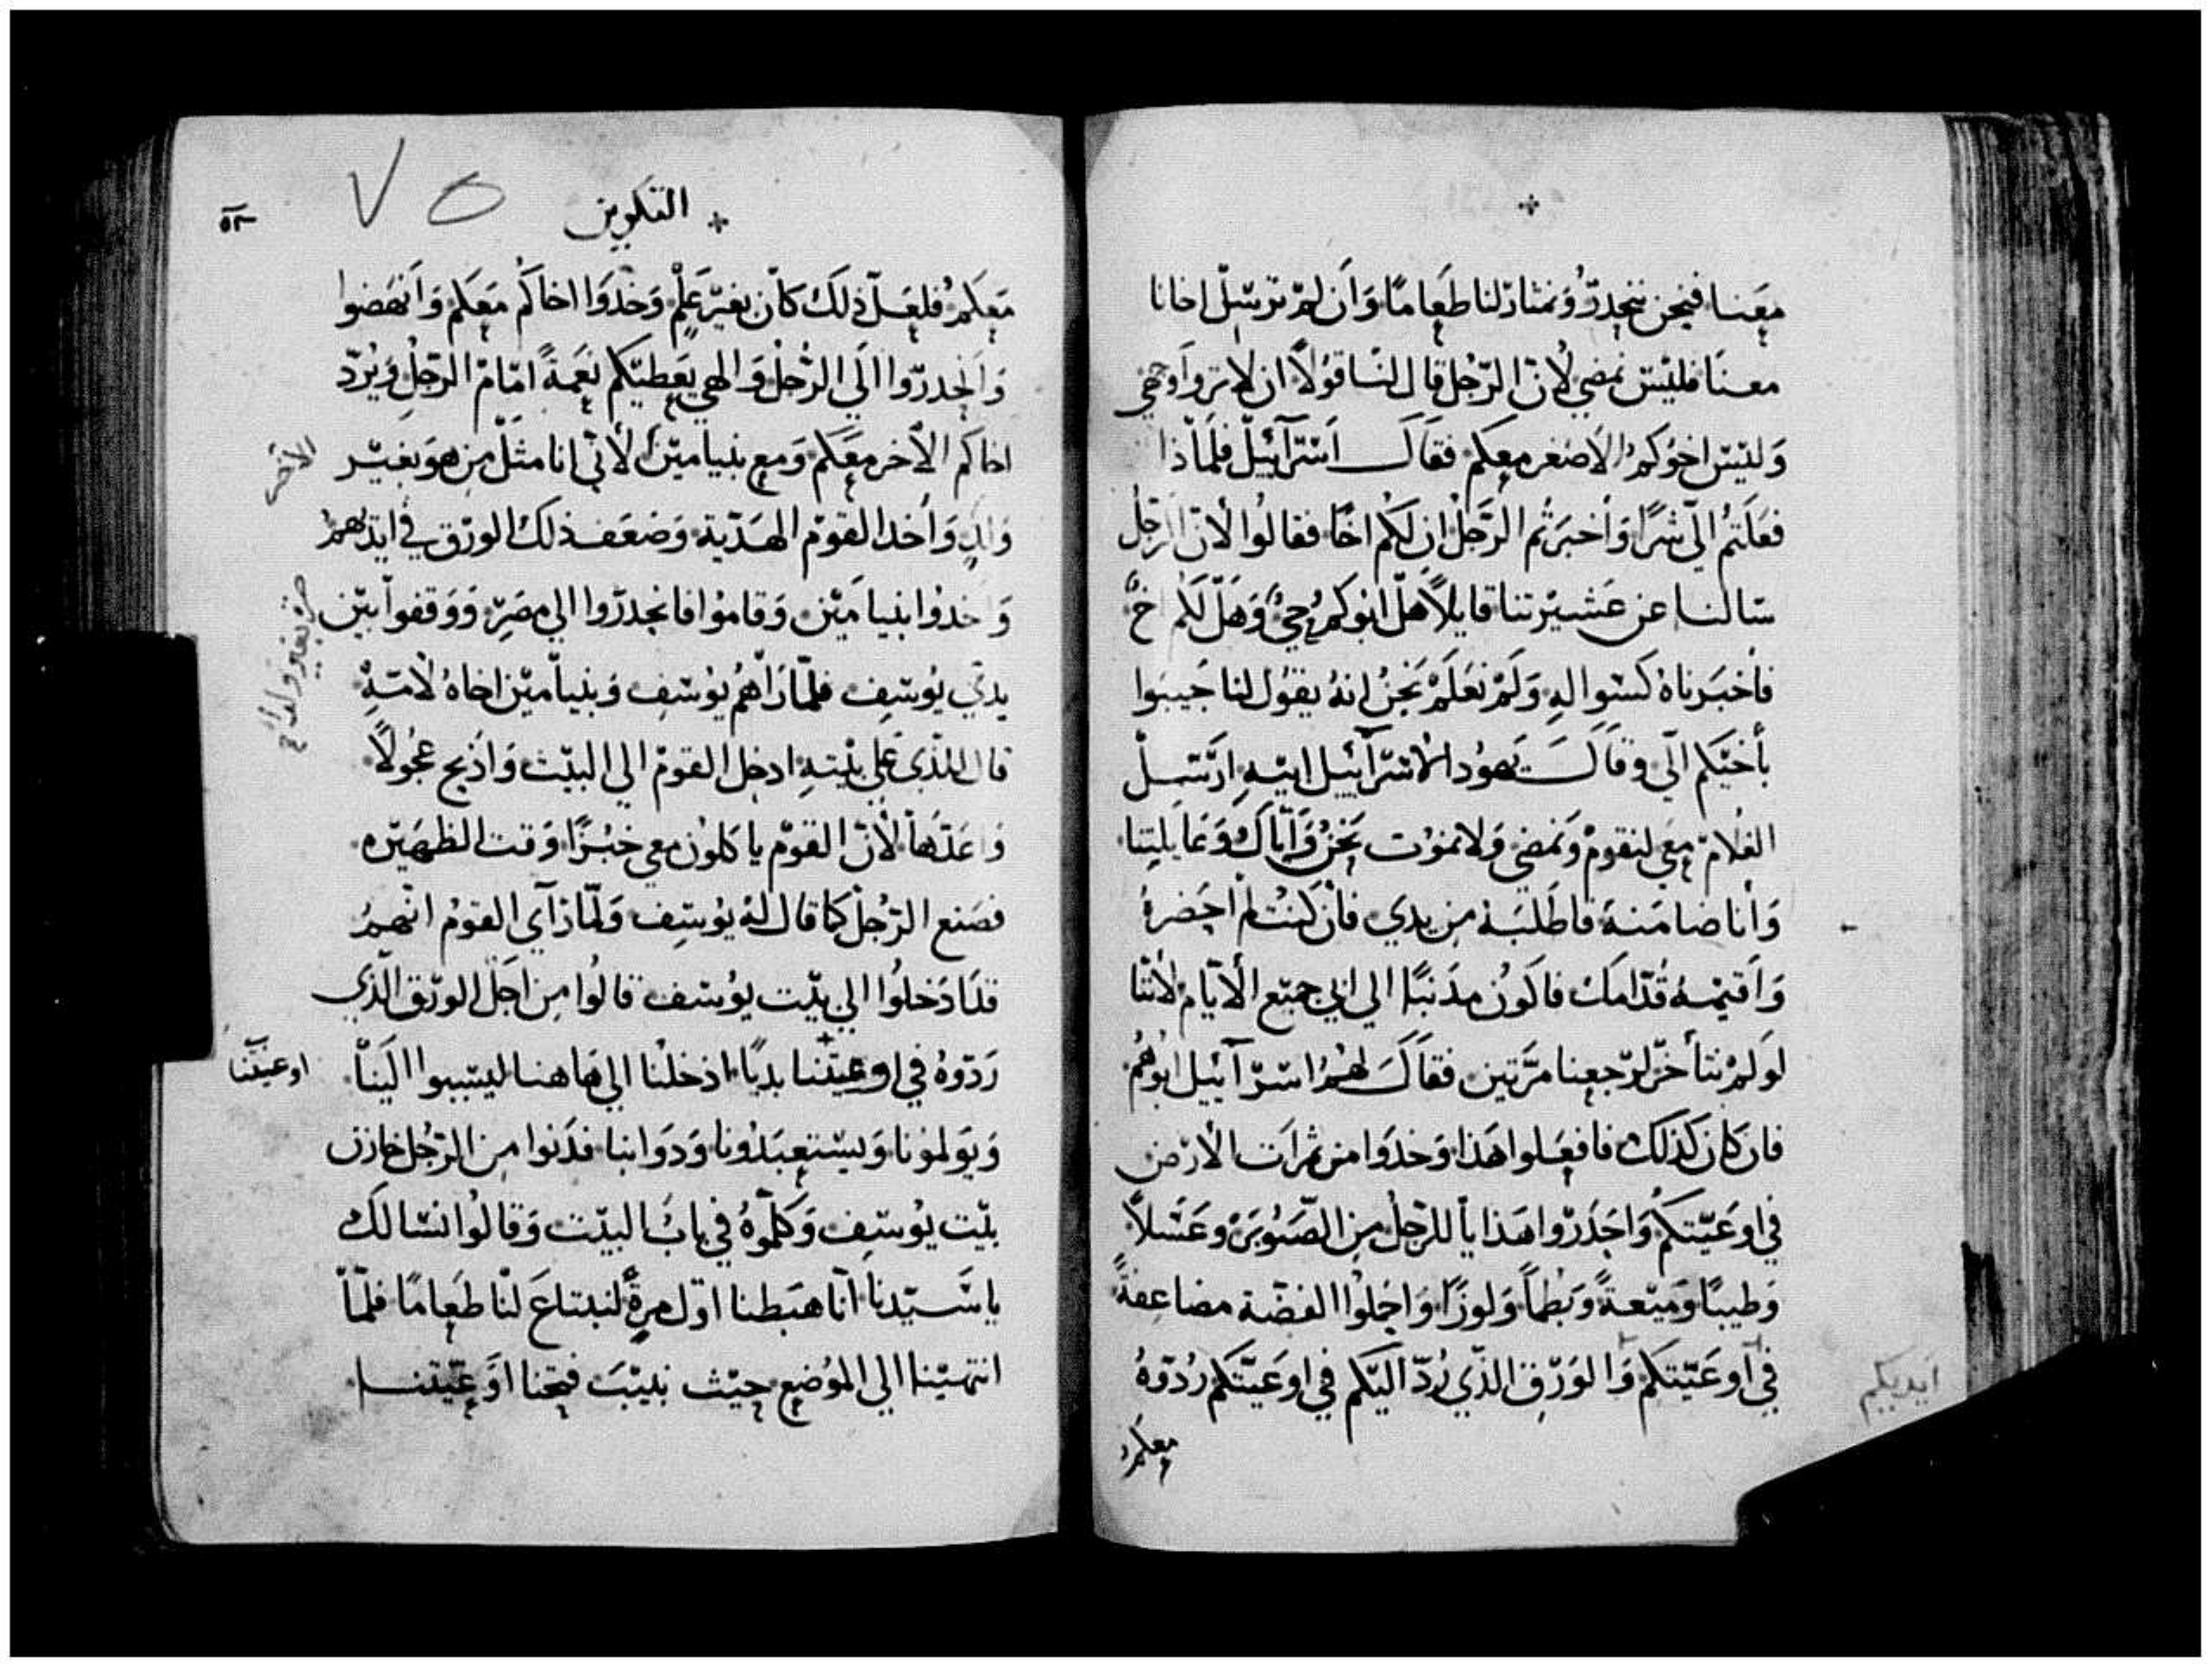 معنا فنحن ننحدر ونمتار لنا طعاما وان لم ترسل اخانا
معنا فليس نمضي لان الرجل قال لنا قولا ان لا تروا وجهي
وليس اخوكم الاصغر معكم فقال اسرآئيل فلماذا
فعلتم الي شرا واخبرتم الرجل ان لكم اخا فقالوا لان الرجل
سالنا عن عشيرتنا قايلا هل ابوكم حي وهل لكم اخ
فاخبرناه كسواله ولم نعلم نحن انه يقول لنا جيبوا
بأخيكم الي وقال يهودا لاسرآئيل ابيه ارسل
الغلام معي لنقوم ونمضي ولا نموت نحن واياك وعايلتنا
وأنا ضامنه فاطلبه من يدي فان كنت لم احضره
واقيمه قدامك فاكون مذنبا الي ابي جميع الايام لاننا
لو لم نتأخر لرجعنا مرتين فقال لهم اسرآئيل ابوهم
فان كان كذلك فافعلوا هذا وخدوا من ثمرات الارض
في اوعيتكم واحدروا هدايا للرجل من الصنوبر وعسلا
وطيبا وميعة وبطما ولوزا واحملوا الفضة مضاعفة
في اوعيتكم والورق الذي رد اليكم في اوعيتكم ردوه
ايديكم
معكم
التكوين
٧٥
٥٣
معكم فلعل ذلك كان بغير علم وخدوا اخاكم معكم وانهضوا
وانحدروا الي الرجل والهي يعطيكم نعمة امام الرجل ويرد
اخاكم الاخر معكم ومع بنيامين لاني انا مثل من هو بغير
الاخر
ولد واخد القوم الهدية وضعف ذلك الورق في ايديهم
واخدوا بنيامين وقاموا فانحدروا الي مصر ووقفوا بين
يدي يوسف فلما رأهم يوسف وبنيامين اخاه لامه
قال للذي علي بيته ادخل القوم الي البيت واذبح عجولا
واعدها لان القوم ياكلون معي خبزا وقت الظهيره
فصنع الرجل كما قال له يوسف ولما رآي القوم انهم
قد ادخلوا الي بيت يوسف قالوا من اجل الورق الذي
ردوه في اوعيتنا بديا ادخلنا الي هاهنا ليسببوا الينا
اوعيتنا
ويولمونا ويستعبدونا ودوابنا فدنوا من الرجل خازن
بيت يوسف وكلموه في باب البيت وقالوا نسالك
يا سيدنا انا هبطنا اول مرة لنبتاع لنا طعاما فلما
انتهينا الي الموضع حيث نبيت فتحنا اوعيتنا